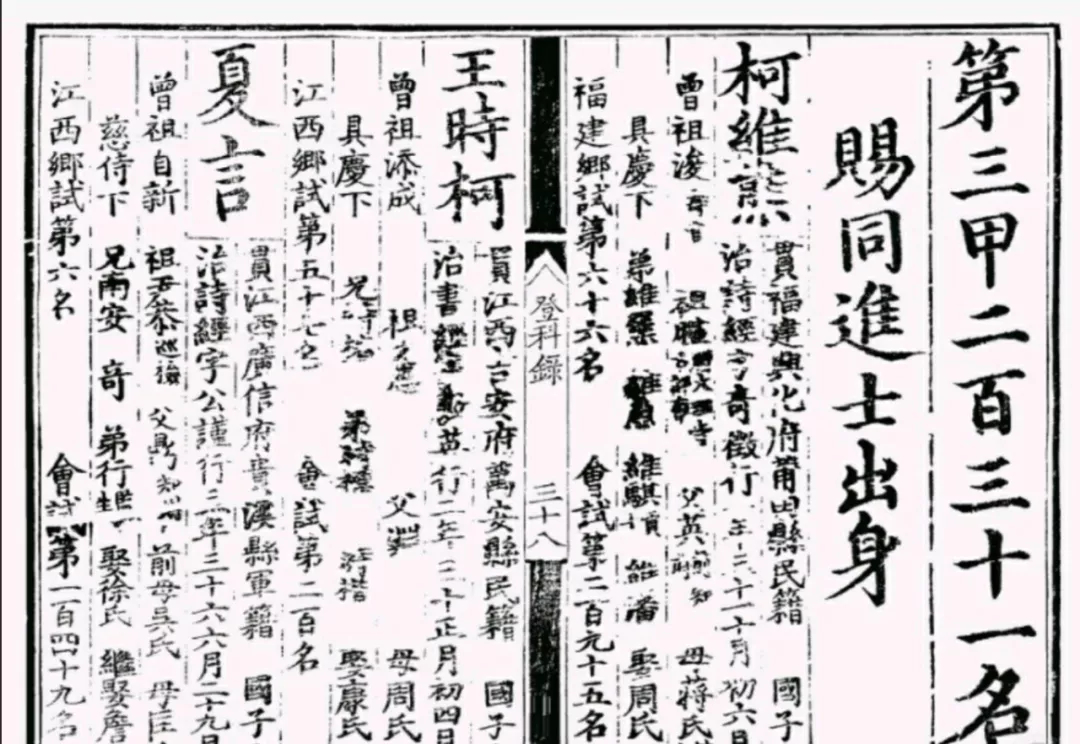 第三甲二百三十一名
賜同進士出身
柯維熊
貫福建興化府莆田縣民籍 國子
治詩經字奇徵行 年二十 十月初六日
曾祖浚 父英 母蔣氏
具慶下 弟維 維騏 維 維藩 娶周氏
福建鄉試第六十六名 會試第二百九十五名
登科錄 三十八
王時柯
貫江西吉安府萬安縣民籍 國子
治書經字 英行二年 十正月初四日
曾祖添成 祖 父 母周氏
具慶下 兄時 弟時 時措 娶康氏
江西鄉試第五十七名 會試第二百名
夏言
貫江西廣信府貴溪縣軍籍 國子
治詩經字公謹行二年三十六六月二十九日
曾祖自新 祖 恭 父鼎 前母吳氏 母匡
慈侍下 兄南安 奇 弟行 娶徐氏 繼娶詹
江西鄉試第六名 會試第一百四十九名